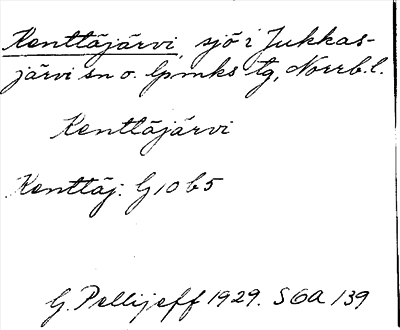 Kenttäjärvi, sjö i Jukkas-
järvi sn o. lpmks tg, Norrb. l.
Kenttäjärvi
Kenttäj: G 10 b 5
G. Pellijeff 1929. SOA 139